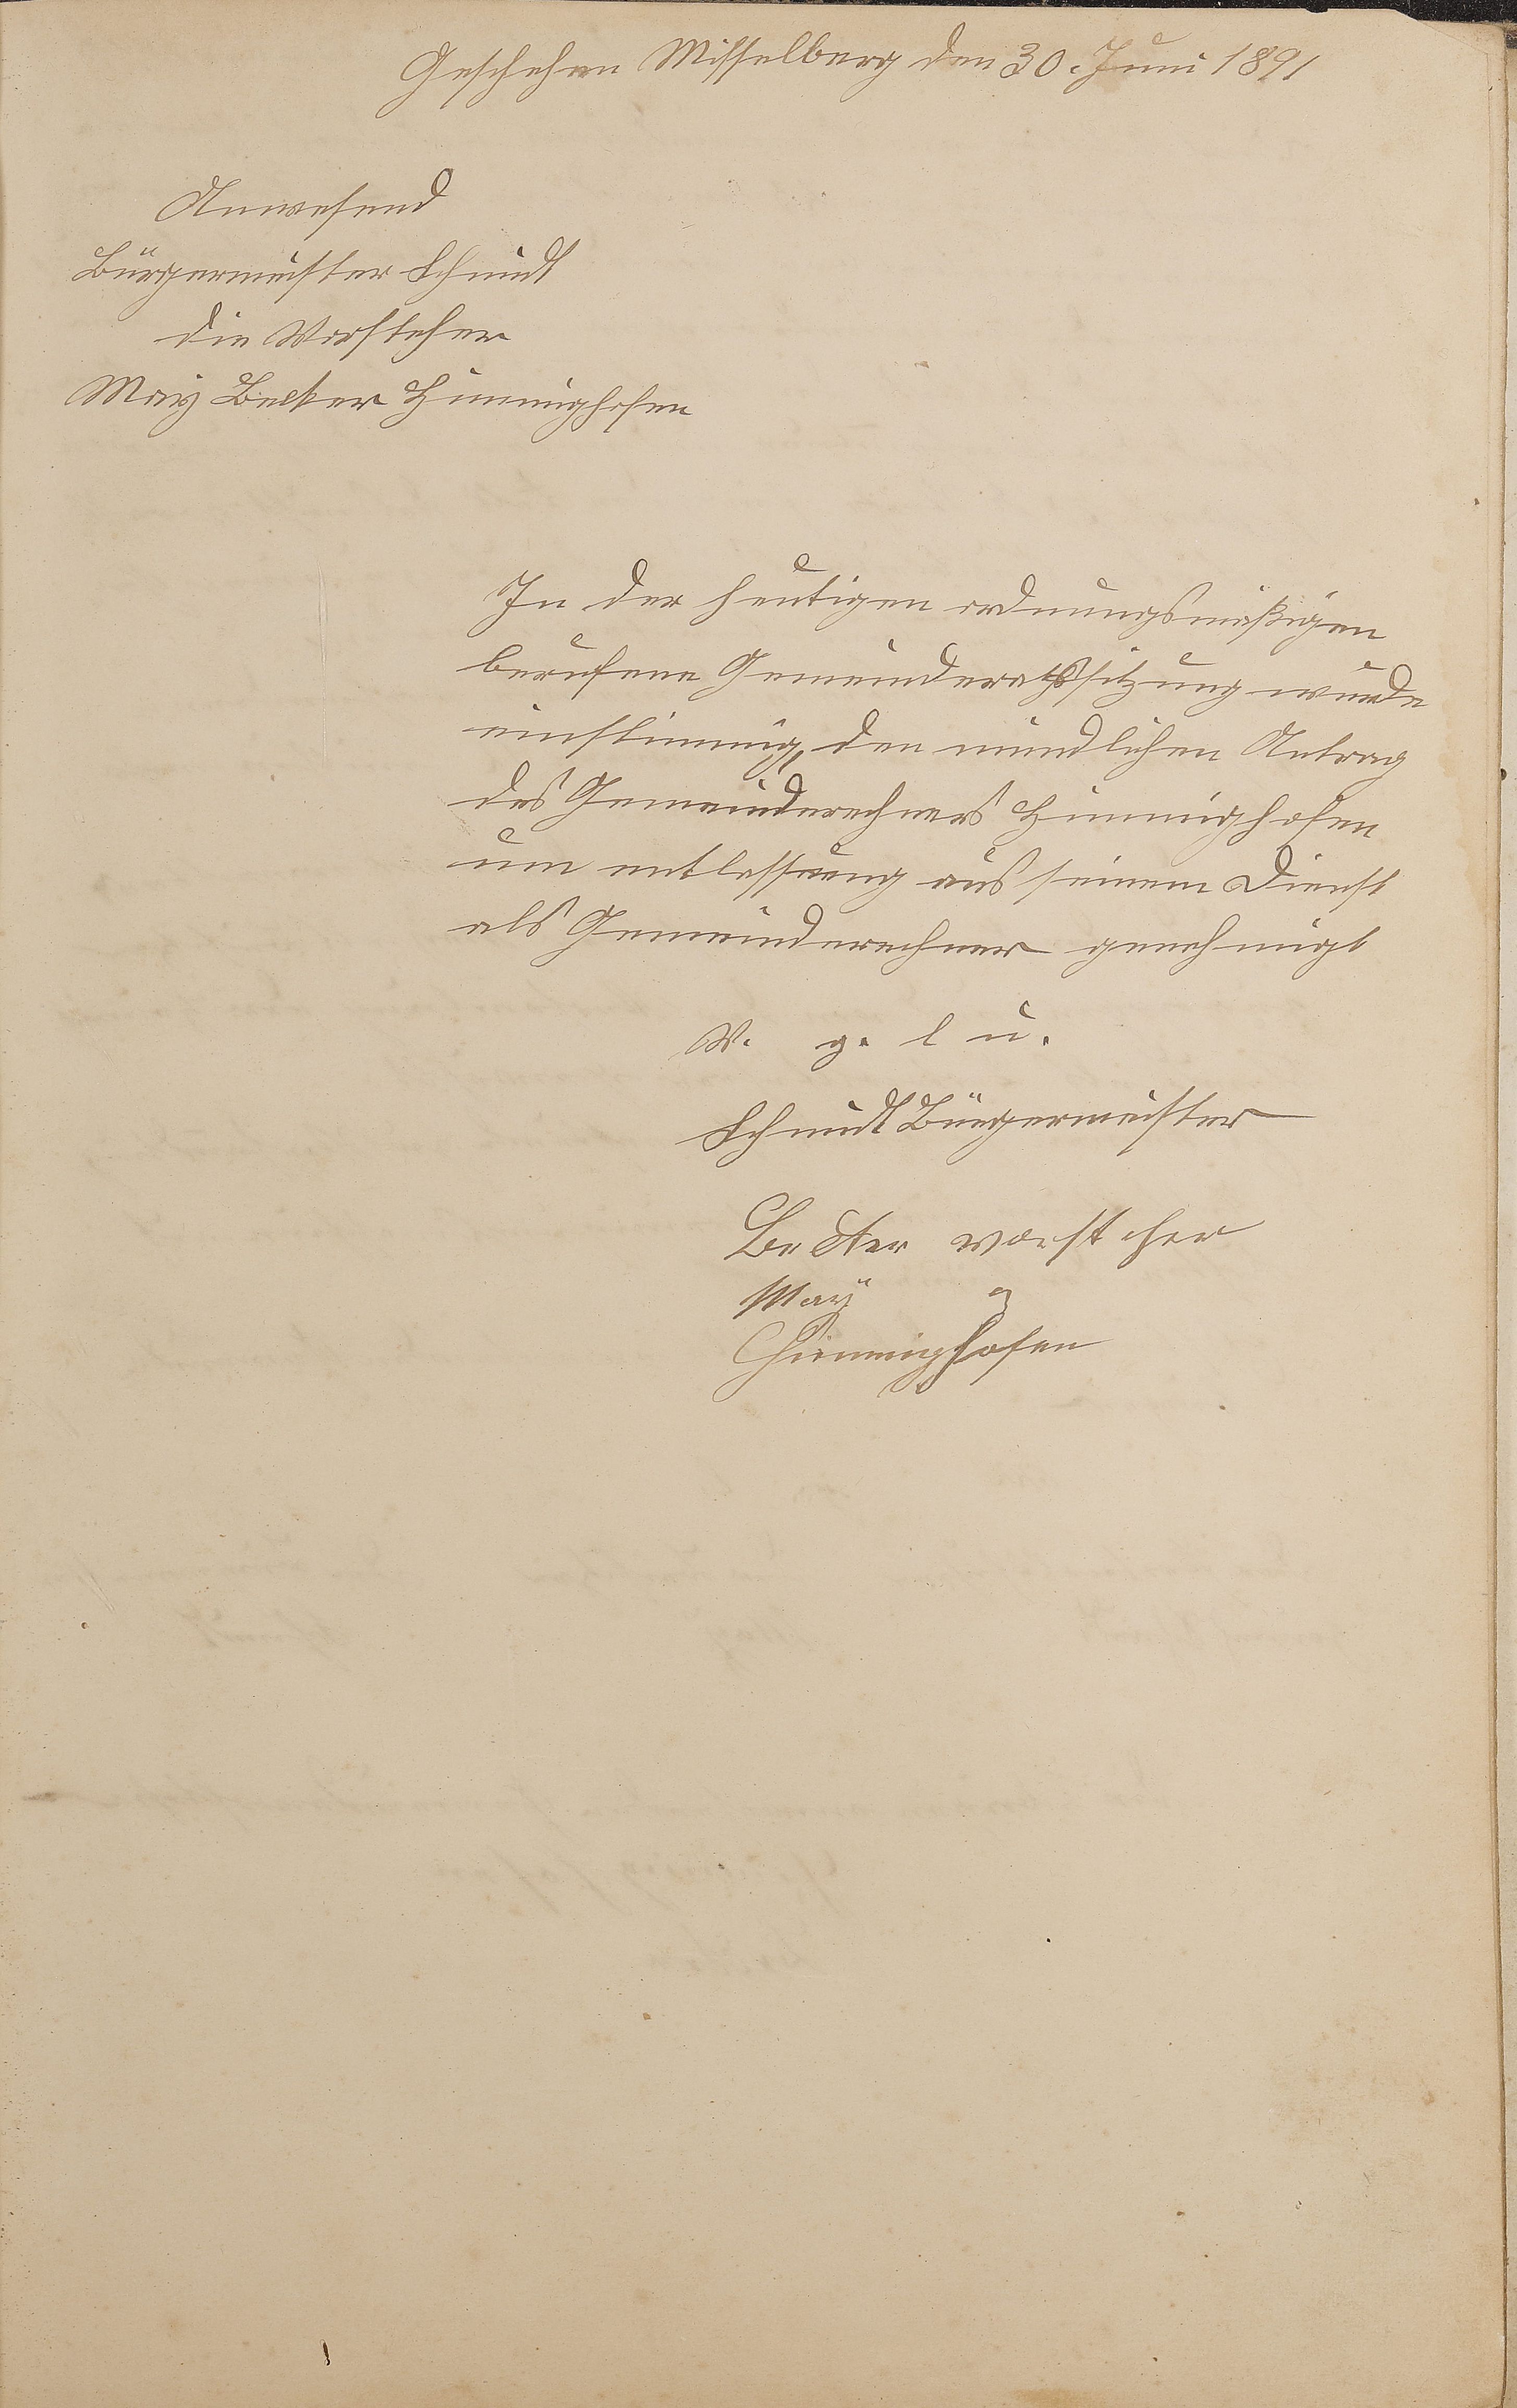 Geschehen Misselberg den 30. Juni 1891
Anwesend
Bürgermeister Schmidt
die Vorsteher
May Becker Hinnighofen
In der heutigen ordnungsmäßigen
berufene Gemeinderathssitzung wurde
einstimmig, den mündlichen Antrag
des Gemeinderechners Hinnighofen
um entlassung aus seinem Dienst
als Gemeinderechner genehmigt
V. g. l u.
Schmidt Bürgermeister
Becker vorsteher
May "
Hinnighofen